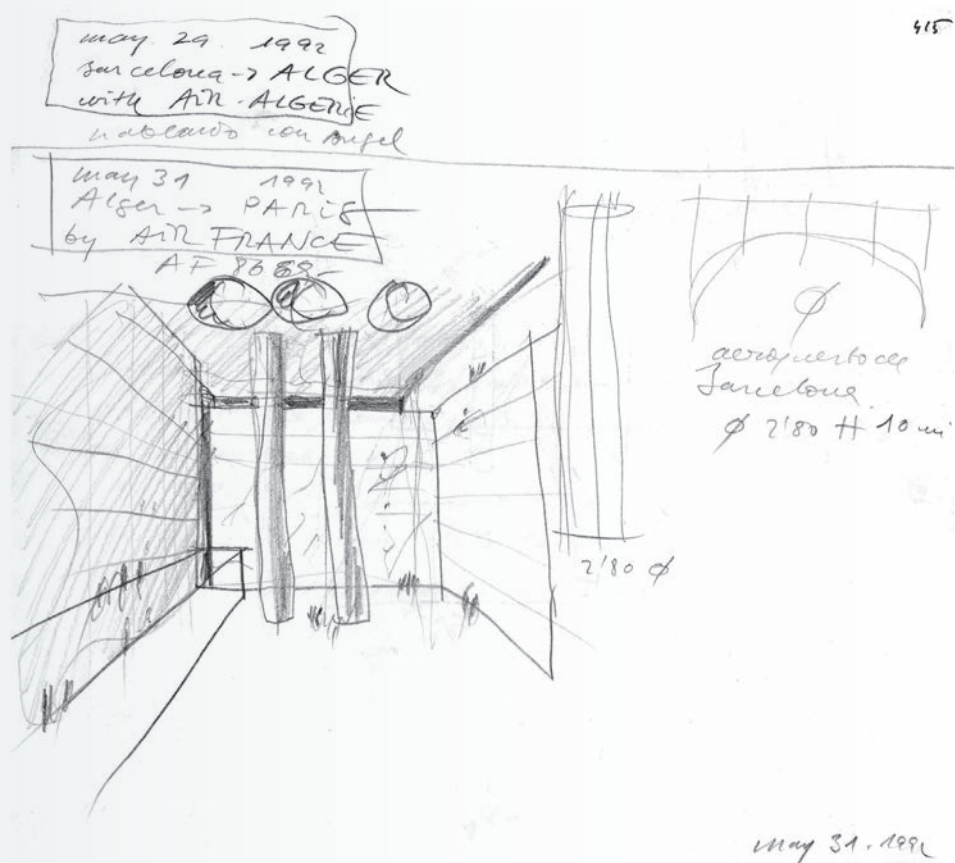 415
may 29 1992
Barcelona -> ALGER
with AIR-ALGERIE
hablando con Angel
may 31 1992
Alger -> PARIS
by AIR FRANCE
AF
aeropuerto de
Barcelona
Ø 2'80 H 10 m
2'80 Ø
may 31. 1992